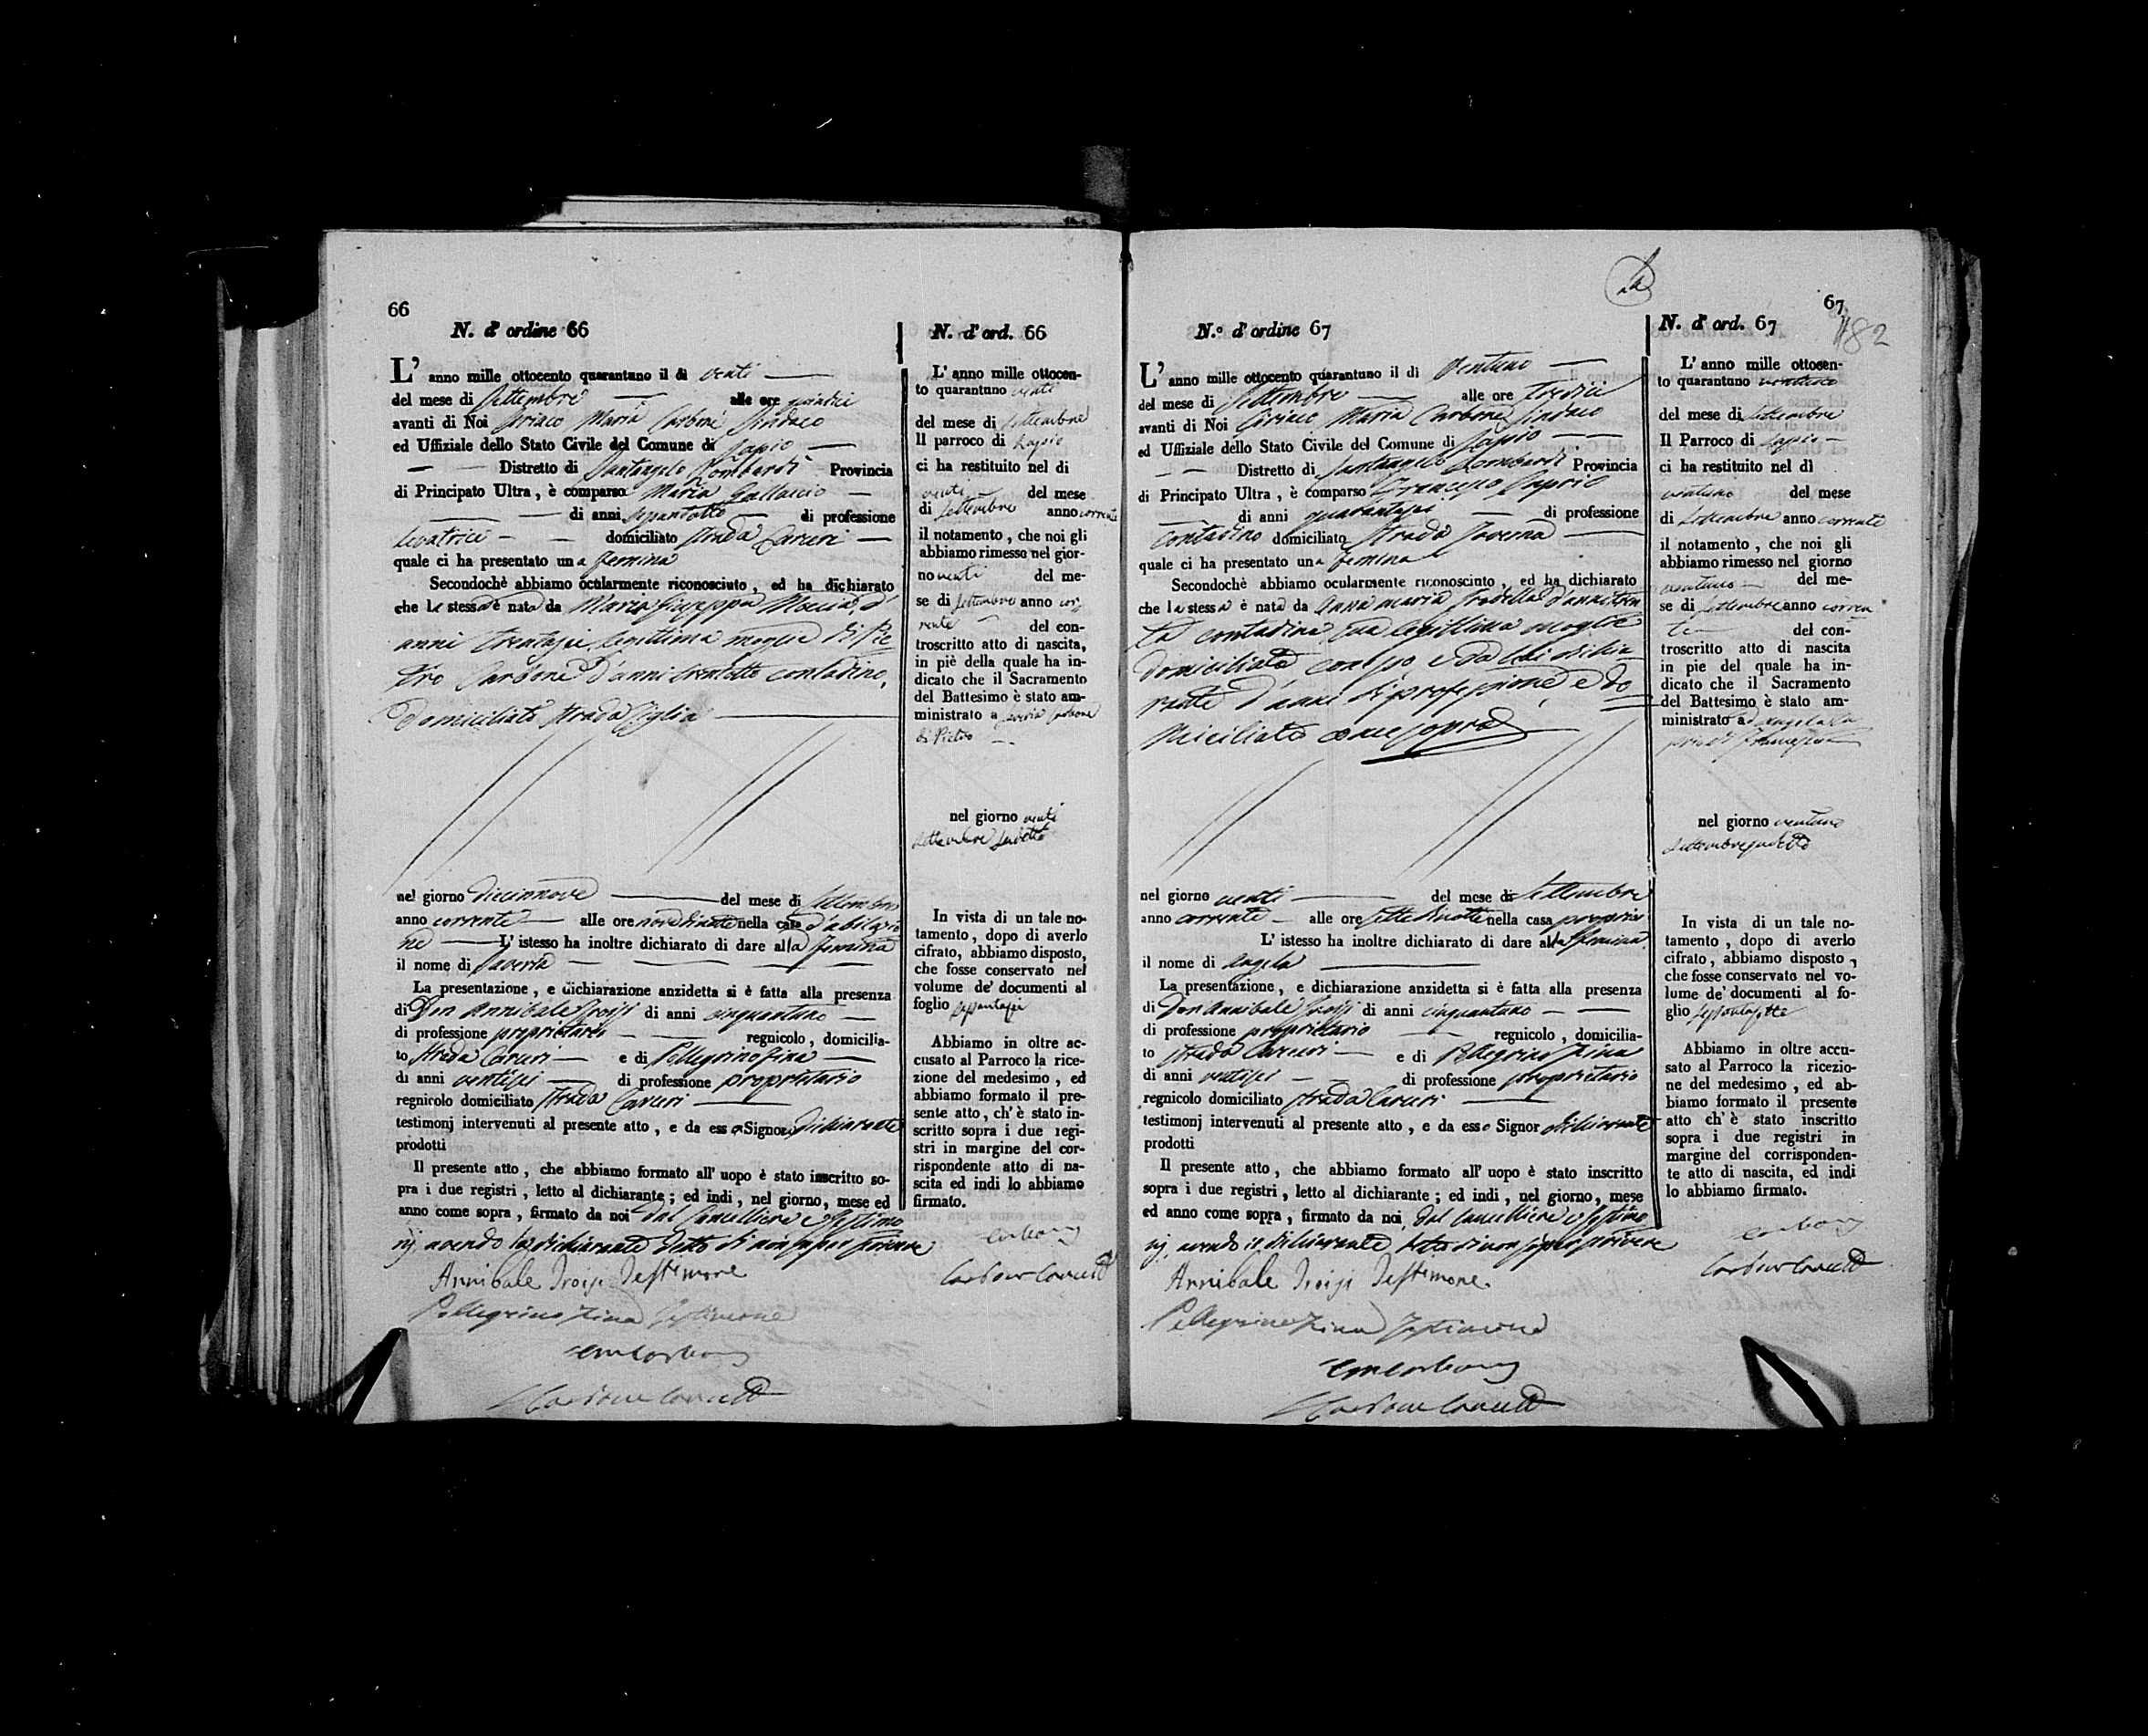 66
N. d' ordine 66
L' anno mille ottocento quarantuno il di venti
del mese di Settembre alle ore quindici
avanti di Noi Ciriaco Maria Carbone Sindaco
ed Uffiziale dello Stato Civile del Comune di Lapio
Distretto di Santangelo Lombardi Provincia
di Principato Ultra, è comparsa Maria Gallaccio
di anni sessantotto di professione
levatrice domiciliato strada Carceri
quale ci ha presentato una femina
Secondochè abbiamo ocularmente riconosciuto, ed ha dichiarato
che la stessa è nata da Maria Giuseppa Moccia d'
anni trentasei legittima moglie di Pie
tro Carbone d'anni trentotto contadino,
domiciliato strada
nel giorno diciannove del mese di Settembre
anno corrente alle ore nove di notte nella casa d'abitazio
ne L' istesso ha inoltre dichiarato di dare alla femina
il nome di Saveria
La presentazione, e dichiarazione anzidetta si è fatta alla presenza
di Don Annibale Troisi di anni cinquantuno
di professione proprietario regnicolo, domicilia-
to strada Carceri e di Pellegrino Zina
di anni ventisei di professione proprietario
regnicolo domiciliato strada Carceri
testimonj intervenuti al presente atto, e da essa Signora dichiarante
prodotti
Il presente atto, che abbiamo formato all' uopo è stato inscritto so-
pra i due registri, letto al dichiarante; ed indi, nel giorno, mese ed
anno come sopra, firmato da noi dal Cancelliere e testimo
nj, avendo la dichiarante detto di non saper scrivere
Annibale Troisi Testimone
Pellegrino Zina Testimone
N. d' ord. 66
L' anno mille ottocen-
to quarantuno venti
del mese di Settembre
Il parroco di Lapio
ci ha restituito nel di
venti del mese
di Settembre anno corrente
il notamento, che noi gli
abbiamo rimesso nel gior-
no venti del me-
se di Settembre anno cor
rente del con-
troscritto atto di nascita,
in piè della quale ha in-
dicato che il Sacramento
del Battesimo è stato am-
ministrato a Saveria Carbone
di Pietro
nel giorno venti
Settembre sudetto
In vista di un tale no-
tamento, dopo di averlo
cifrato, abbiamo disposto,
che fosse conservato nel
volume de' documenti al
foglio sessantasei
Abbiamo in oltre ac-
cusato al Parroco la rice-
zione del medesimo, ed
abbiamo formato il pre-
sente atto, ch' è stato in-
scritto sopra i due regi-
stri in margine del cor-
rispondente atto di na-
scita ed indi lo abbiamo
firmato.
67
182
N.° d' ordine 67
L' anno mille ottocento quarantuno il di ventuno
del mese di Settembre alle ore tredici
avanti di Noi Ciriaco Maria Carbone Sindaco
ed Uffiziale dello Stato Civile del Comune di Lapio
Distretto di Santangelo Lombardi Provincia
di Principato Ultra, è comparso Francesco Caprio
di anni quarantasei di professione
contadino domiciliato strada Taverna
quale ci ha presentato una femina
Secondochè abbiamo ocularmente riconosciuto, ed ha dichiarato
che la stessa è nata da Anna Maria d'anni tren
ta contadina sua legittima moglie
domiciliata con esso e da lui dichia
rante d'anni di professione, e do
miciliato come sopra
nel giorno venti del mese di Settembre
anno corrente alle ore sette di notte nella casa propria
L' istesso ha inoltre dichiarato di dare alla femina
il nome di Angela
La presentazione, e dichiarazione anzidetta si è fatta alla presenza
di Don Annibale Troisi di anni cinquantuno
di professione proprietario regnicolo, domicilia-
to strada Carceri e di Pellegrino Zina
di anni ventisei di professione proprietario
regnicolo domiciliato strada Carceri
testimonj intervenuti al presente atto, e da esso Signor dichiarante
prodotti
Il presente atto, che abbiamo formato all' uopo è stato inscritto
sopra i due registri, letto al dichiarante; ed indi, nel giorno, mese
ed anno come sopra, firmato da noi dal Cancelliere e testimo
nj, avendo il dichiarante detto di non saper scrivere
Annibale Troisi Testimone
Pellegrino Zina Testimone
N. d' ord. 67
L' anno mille ottocen-
to quarantuno ventuno
del mese di Settembre
Il Parroco di Lapio
ci ha restituito nel dì
ventuno del mese
di Settembre anno corrente
il notamento, che noi gli
abbiamo rimesso nel giorno
ventuno del me-
se di Settembre anno corren
te del con-
troscritto atto di nascita
in pie del quale ha in-
dicato che il Sacramento
del Battesimo è stato am-
ministrato ad Angela Ca
prio di Francesco
nel giorno ventuno
Settembre sudetto
In vista di un tale no-
tamento, dopo di averlo
cifrato, abbiamo disposto,
che fosse conservato nel vo-
lume de' documenti al fo-
glio sessantasette
Abbiamo in oltre accu-
sato al Parroco la ricezio-
ne del medesimo, ed ab-
biamo formato il presente
atto ch' è stato inscritto
sopra i due registri in
margine del corrisponden-
te atto di nascita, ed indi
lo abbiamo firmato.